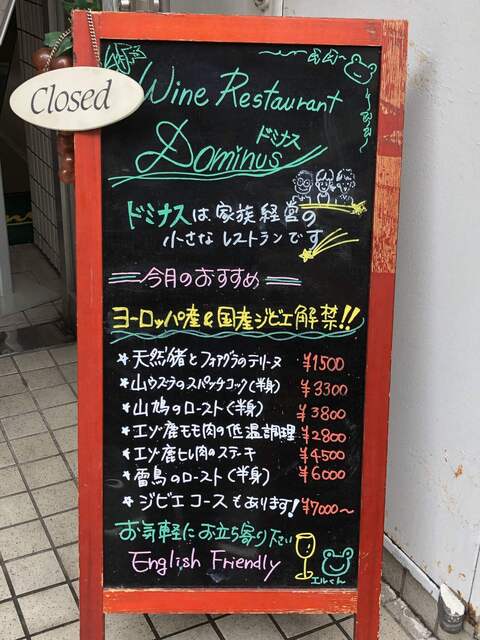 Closed
Wine Restaurant
ドミナス
Dominus
ドミナスは家族経営の
小さなレストランです
今月のおすすめ
ヨーロッパ産&国産ジビエ解禁!!
★天然猪とフォアグラのテリーヌ ¥1500
★山ウズラのスパッチコック(半身) ¥3300
★山鳩のロースト(半身) ¥3800
★エゾ鹿モモ肉の低温調理 ¥2800
★エゾ鹿ヒレ肉のステーキ ¥4500
★雷鳥のロースト(半身) ¥6000
★ジビエコースもあります! ¥7000〜
お気軽にお立ち寄り下さい
English Friendly
エルくん